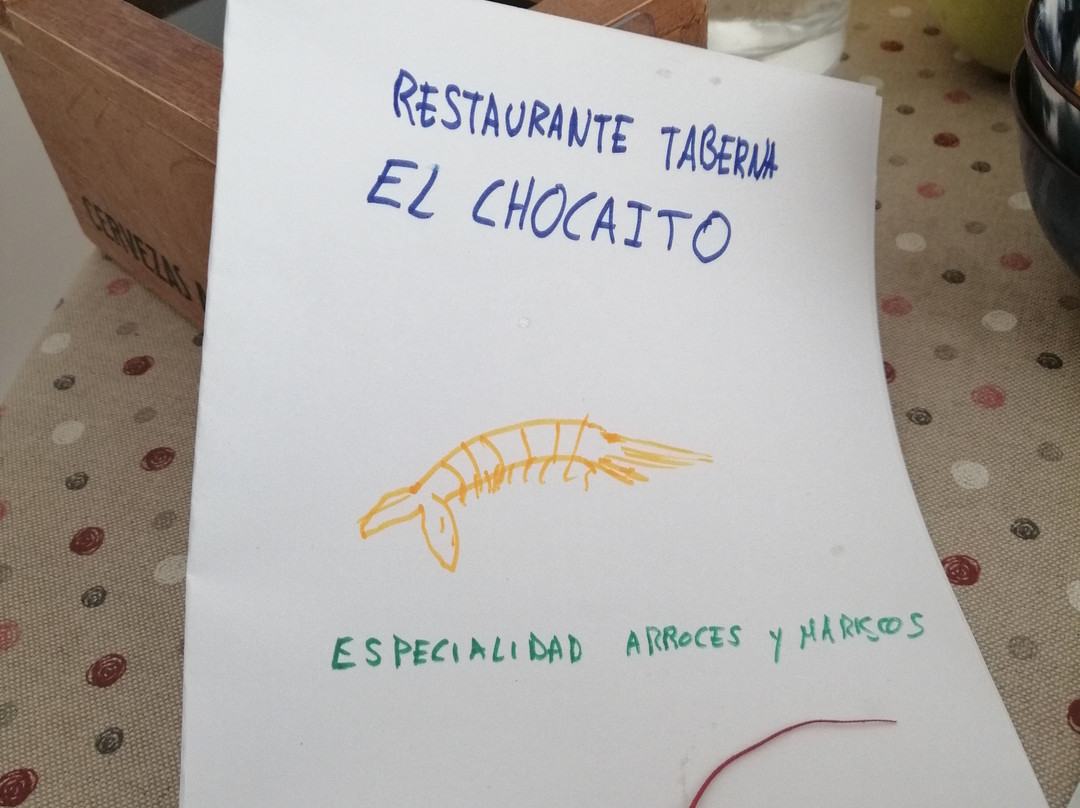 RESTAURANTE TABERNA
EL CHOCAITO
ESPECIALIDAD ARROCES Y MARISCOS
CERVEZAS